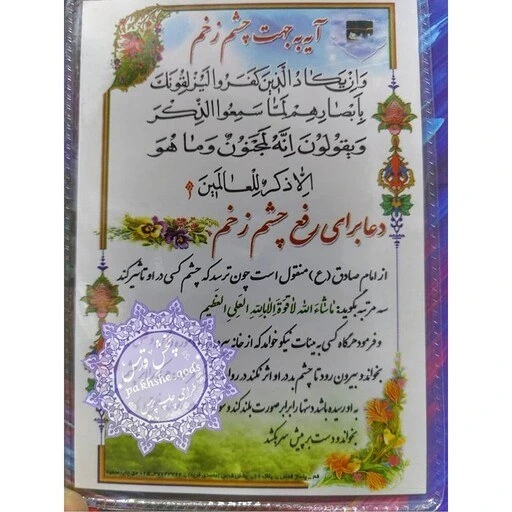 آیه به جهت چشم زخم
وَاِنْ يَكادُ الَّذينَ كَفَرُوا لَيُزْلِقُونَكَ
بِاَبْصارِهِمْ لَمّا سَمِعُوا الذِّكْرَ
وَيَقُولُونَ اِنَّهُ لَمَجْنُونٌ وَما هُوَ
اِلّا ذِكْرٌ لِلْعالَمينَ
دعا برای رفع چشم زخم
از امام صادق (ع) منقول است چون ترسد که چشم کسی در او تاثیر کند
سه مرتبه بگوید: ماشاءَ الله لاقوةَ اِلّا بِاللهِ العَلیِ العَظیم
و فرمود هرگاه کسی به هیئات نیکو خواهد که از خانه
بخواند و بیرون رود تا چشم بد در او اثر نکند در
به او رسیده باشد دستها را برابر صورت بلند کند
بخواند و دست بر پیش سر بکشد
پخش قدس
pakhshe.gods